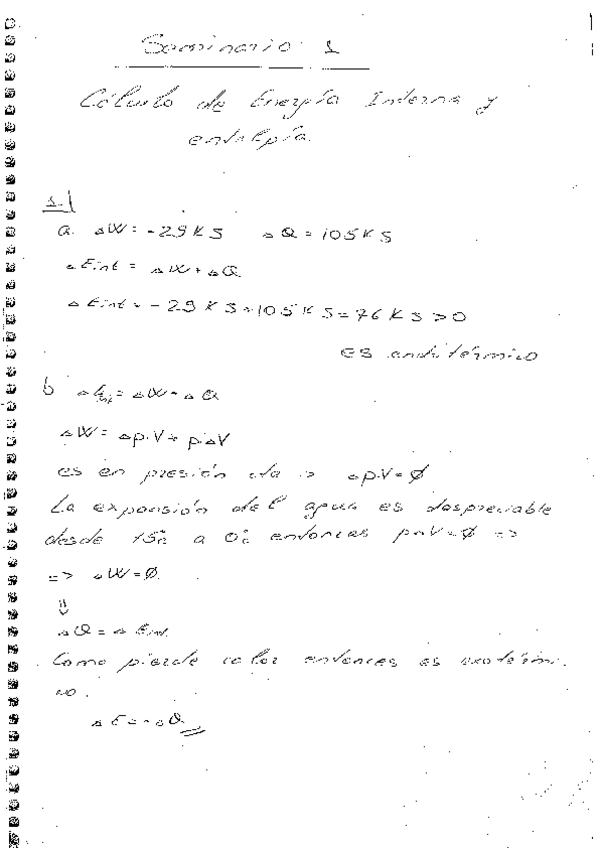 Seminario 1
Cálculo de Energía Interna y
entalpía.
1.|
a. ΔW = -29KS ΔQ = 105KS
ΔEint = ΔW + ΔQ
ΔEint = -29KS + 105KS = 76KS > 0
es endotérmico
b ΔEint = ΔW + ΔQ
ΔW = Δp·V + pΔV
es en presión cta => Δp·V = Ø
La expansión del agua es despreciable
desde 15º a 0º entonces pΔV = Ø =>
=> ΔW = Ø.
⇓
ΔQ = ΔEint.
Como pierde calor entonces es exotérmi.
co.
ΔE = -ΔQ